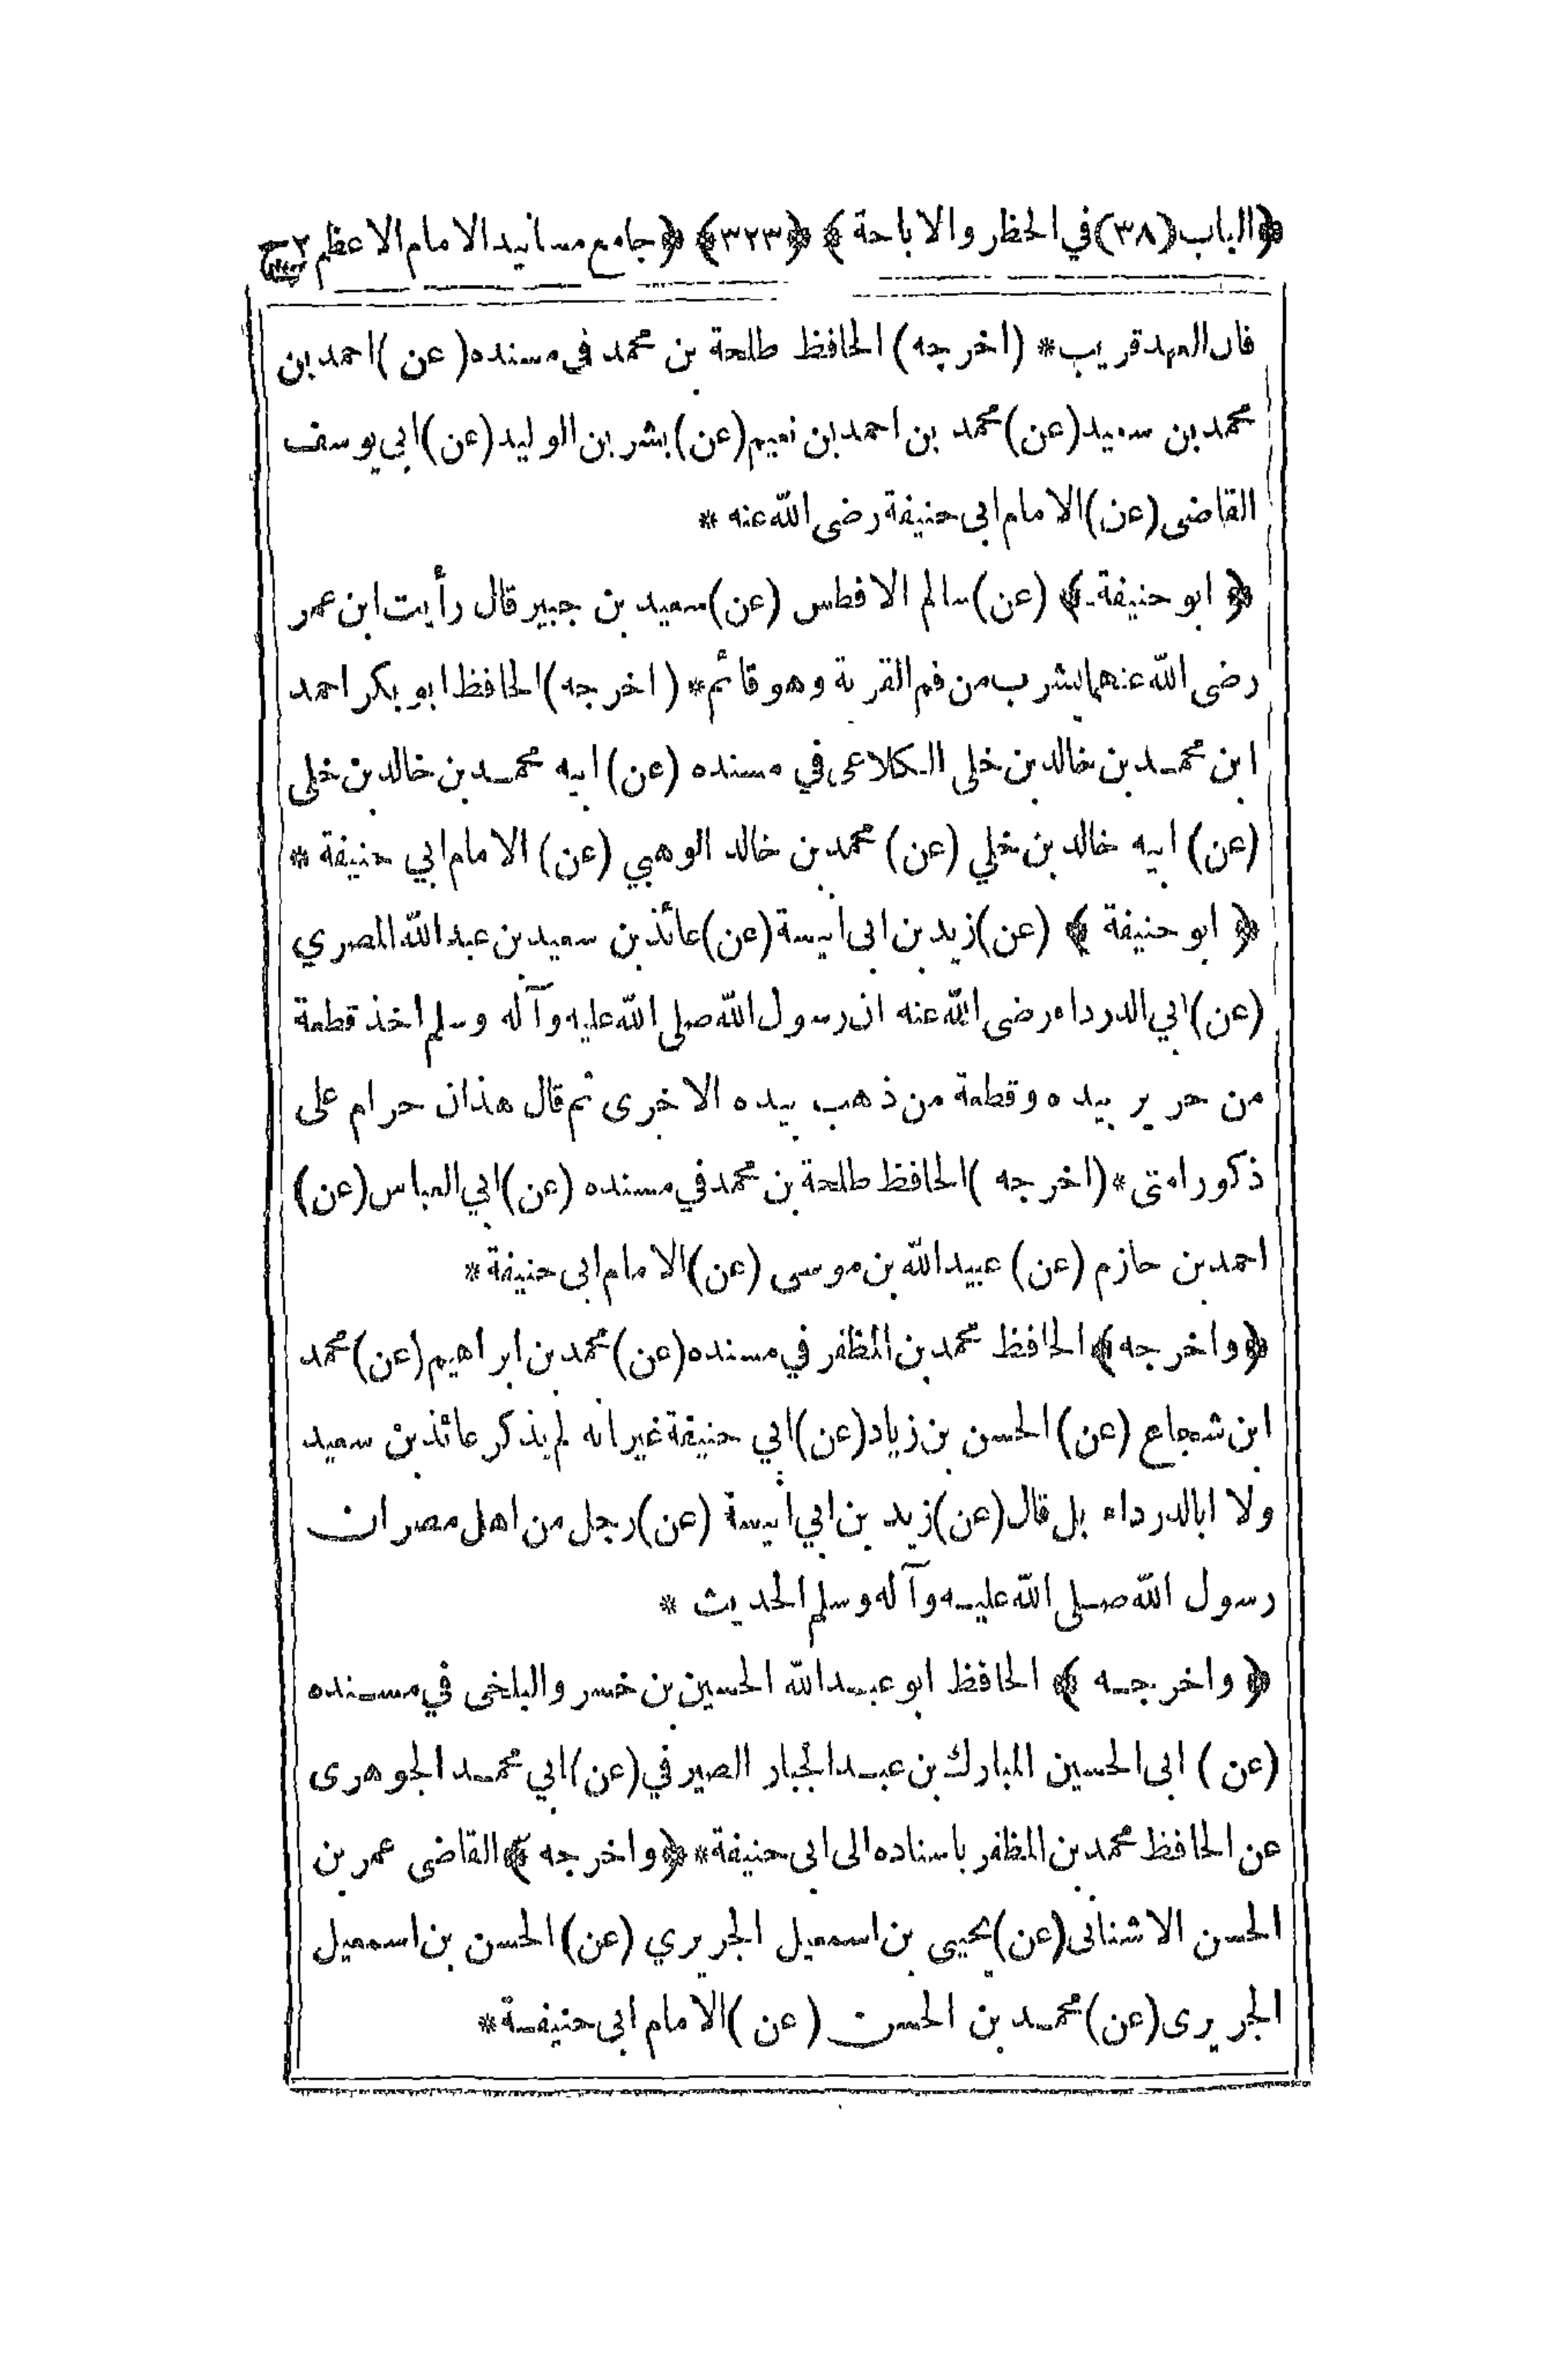 ﴿الباب(٣٨)في الحظر والاباحة﴾ ﴿٣٢٣﴾ ﴿جامع مسانيد الامام الاعظم ٢ ج
فان العهد قريب* (اخرجه) الحافظ طلحة بن محمد فى مسنده (عن) احمد بن
محمد بن سعيد (عن) محمد بن احمد بن نعيم (عن) بشر بن الوليد (عن) ابى يوسف
القاضى (عن) الامام ابى حنيفة رضى الله عنه *
﴿ ابو حنيفة ﴾ (عن) سالم الافطس (عن) سعيد بن جبير قال رأيت ابن عمر
رضى الله عنهما يشرب من فم القربة وهو قائم* (اخرجه) الحافظ ابو بكر احمد
ابن محمد بن خالد بن خلى الكلاعى في مسنده (عن) ابيه محمد بن خالد بن خلى
(عن) ابيه خالد بن خلي (عن) محمد بن خالد الوهبي (عن) الامام ابي حنيفة *
﴿ ابو حنيفة ﴾ (عن) زيد بن ابى أنيسة (عن) عائذ بن سعيد بن عبد الله المصري
(عن) ابي الدرداء رضى الله عنه ان رسول الله صلى الله عليه وآله وسلم اخذ قطعة
من حرير بيده وقطعة من ذهب بيده الاخرى ثم قال هذان حرام على
ذكور امتى * (اخرجه) الحافظ طلحة بن محمد في مسنده (عن) ابي العباس (عن)
احمد بن حازم (عن) عبيد الله بن موسى (عن) الامام ابى حنيفة *
﴿واخرجه﴾ الحافظ محمد بن المظفر في مسنده (عن) محمد بن ابراهيم (عن) محمد
ابن شجاع (عن) الحسن بن زياد (عن) ابي حنيفة غير انه لم يذكر عائذ بن سعيد
ولا ابا الدرداء بل قال (عن) زيد بن ابي أنيسة (عن) رجل من اهل مصر ان
رسول الله صلى الله عليه وآله وسلم الحديث *
﴿ واخرجه ﴾ الحافظ ابو عبد الله الحسين بن خسرو البلخى في مسنده
(عن) ابى الحسين المبارك بن عبد الجبار الصيرفي (عن) ابي محمد الجوهرى
عن الحافظ محمد بن المظفر باسناده الى ابى حنيفة * ﴿واخرجه﴾ القاضى عمر بن
الحسن الاشنانى (عن) يحيى بن اسمعيل الجريري (عن) الحسن بن اسمعيل
الجريرى (عن) محمد بن الحسن (عن) الامام ابى حنيفة *